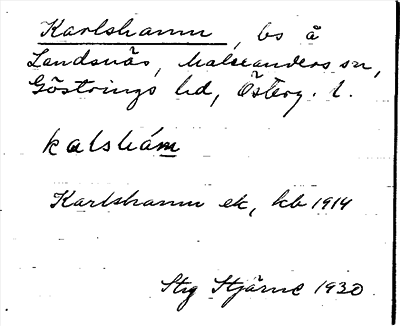 Karlshamn, bs å
Landsnäs, Malexanders sn,
Göstrings hd, Österg. l.
kalshám
Karlshamn ek, kb 1914
Stig Stjärne 1930